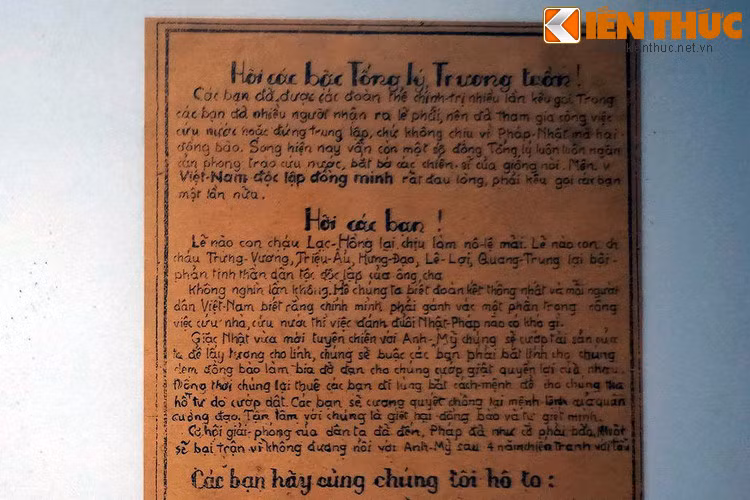 KIẾN THỨC
kienthuc.net.vn
Hỡi các bậc Tổng lý, Trương tuần!
Các bạn đã được các đoàn thể chính-trị nhiều lần kêu gọi. Trong
các bạn đã nhiều người nhận ra lẽ phải, nên đã tham gia công việc
cứu nước hoặc đứng trung lập, chứ không chịu vì Pháp-Nhật mà hại
đồng bào. Song hiện nay vẫn còn một số đông Tổng lý luôn luôn ngăn
cản phong trào cứu nước, bắt bớ các chiến-sĩ của giống nòi. Nên, V
Việt-Nam độc lập đồng minh rất đau lòng, phải kêu gọi các bạn
một lần nữa.
Hỡi các bạn!
Lẽ nào con cháu Lạc-Hồng lại chịu làm nô-lệ mãi. Lẽ nào con ch
cháu Trưng-Vương, Triệu-Ẩu, Hưng-Đạo, Lê-Lợi, Quang-Trung lại bội-
phản tinh thần dân tộc độc lập của ông cha.
Không nghìn lần không. Hễ chúng ta biết đoàn kết thống nhất và mỗi người
dân Việt-Nam biết rằng chính mình phải gánh vác một phần trong công
việc cứu nhà, cứu nước thì việc đánh đuổi Nhật-Pháp nào có khó gì.
Giặc Nhật vừa mới tuyên chiến với Anh-Mỹ chúng sẽ cướp tài sản của
ta để lấy lương cho lính, chúng sẽ buộc các bạn phải bắt lính cho chúng
đem đồng bào làm bia đỡ đạn cho chúng cướp giật quyền lợi của nhau.
Đồng thời chúng lại thuê các bạn đi lùng bắt cách-mệnh để cho chúng tha
hồ tự do cướp đất. Các bạn sẽ cương quyết chống lại mệnh lệnh của quân
cường đạo. Tận tâm với chúng là giết hại đồng bào và tự giết mình.
Cơ hội giải-phóng của dân ta đã đến, Pháp đã như cỏ phải bão, Nhật
sẽ bại trận vì không đương nổi với Anh-Mỹ sau 4 năm chiến tranh với tầu
Các bạn hãy cùng chúng tôi hô to: